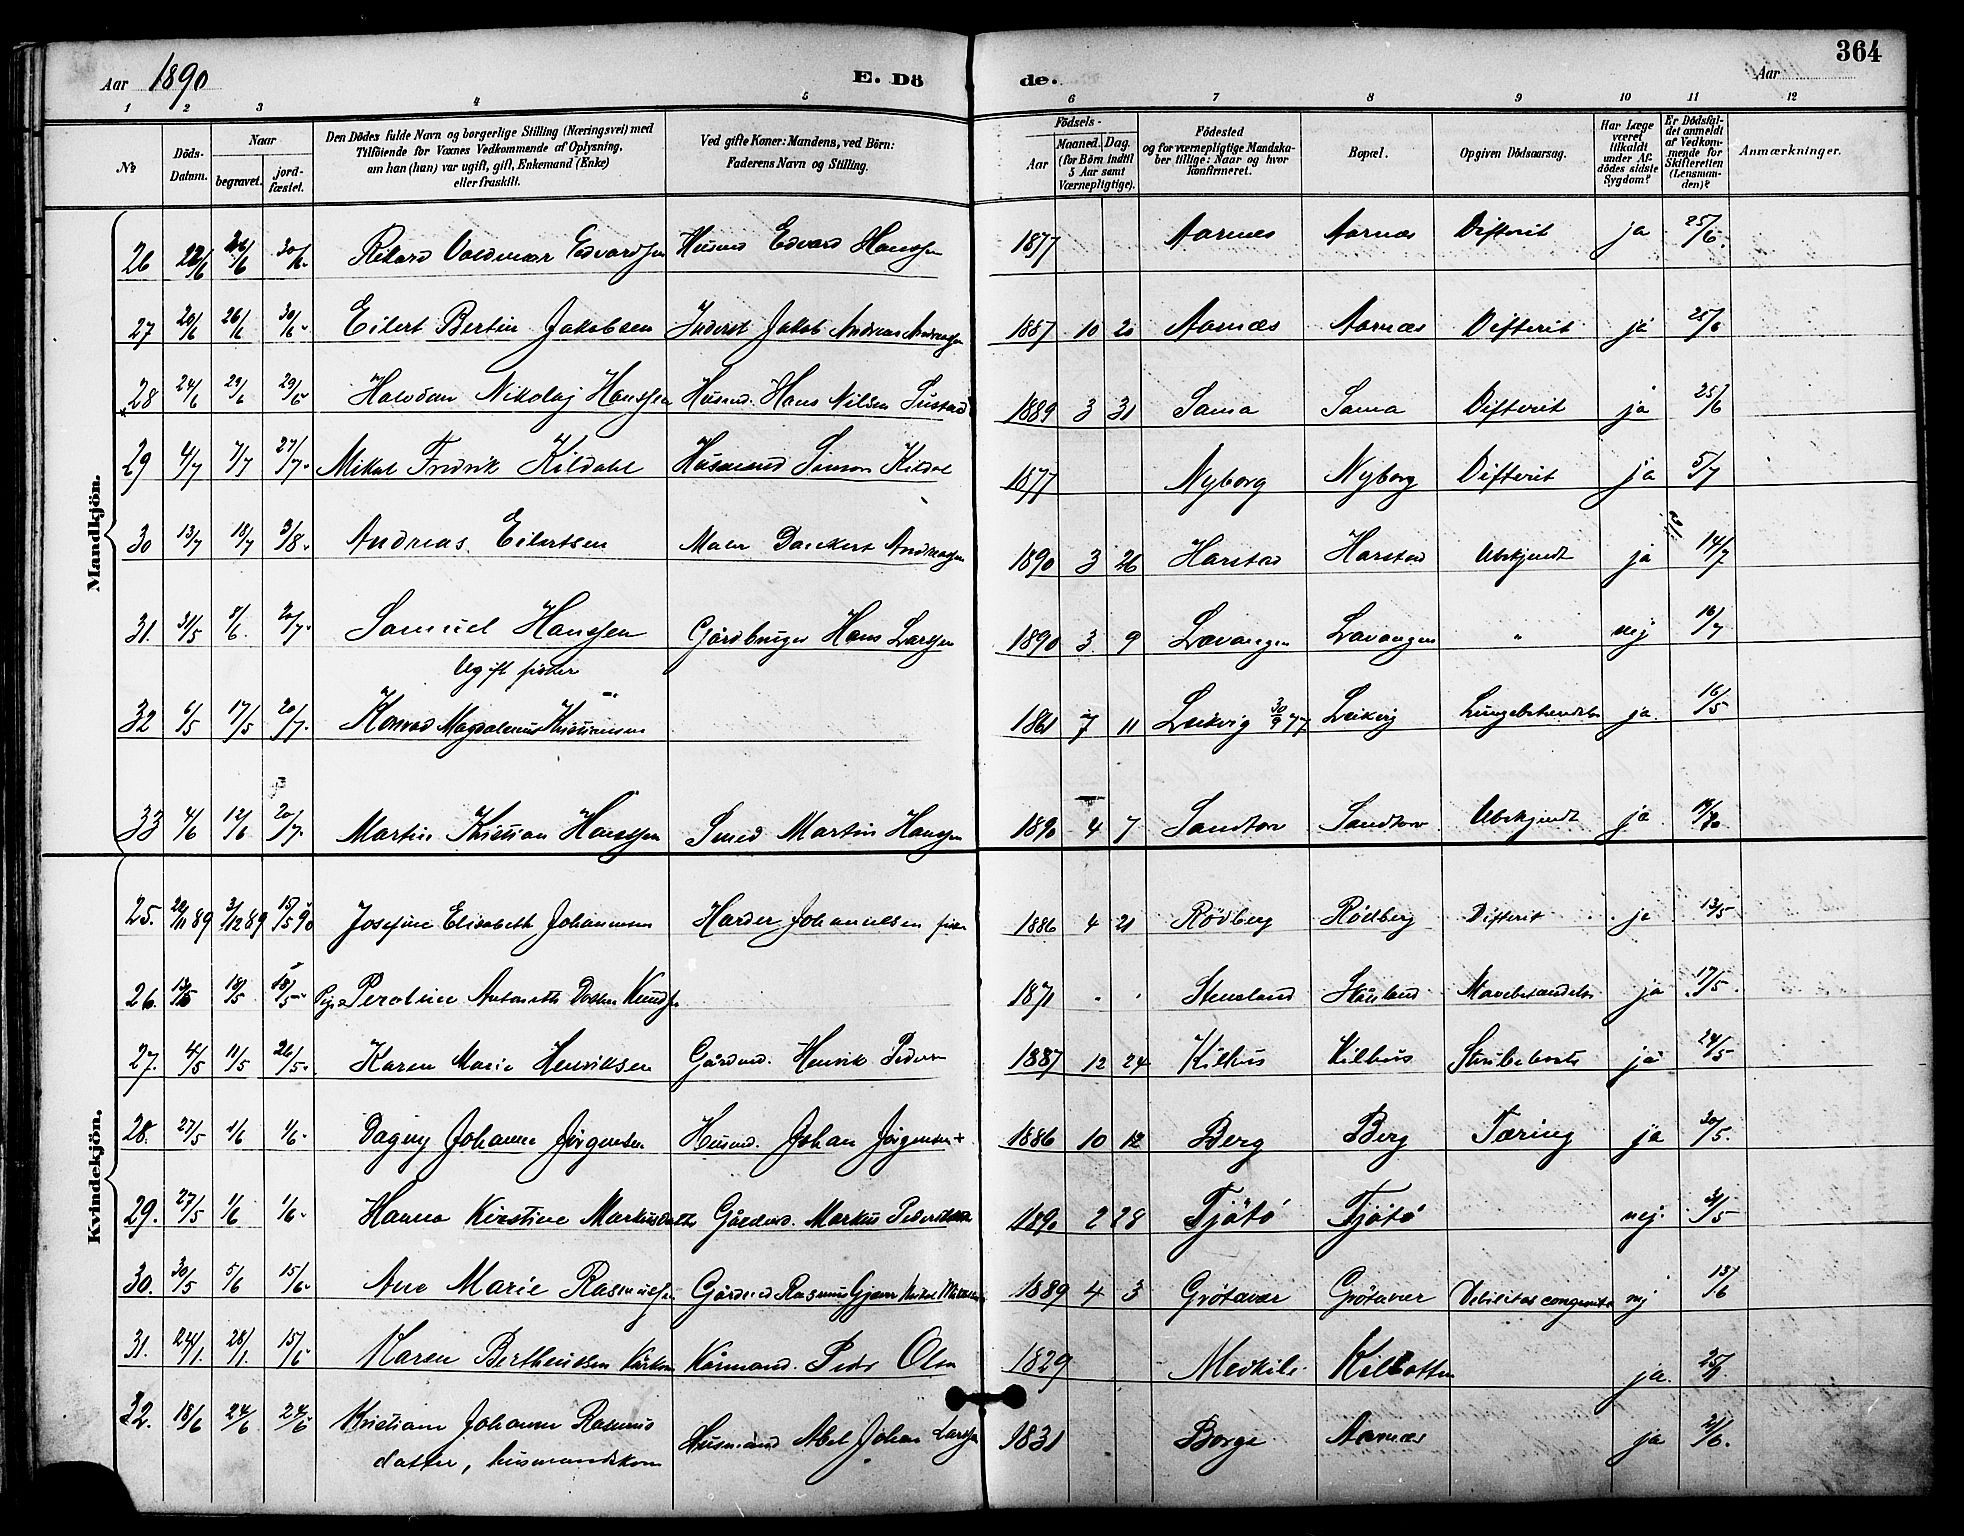 364
Aar 1890
E. Dö de.
Aar
1 2 3 4 5 6 7 8 9 10 11 12
No
Döds-Datum.
Naar
begravet.
jord-fæstet.
Den Dödes fulde Navn og borgerlige Stilling (Næringsvei) med
Tilföiende for Voxnes Vedkommende af Oplysning,
om han (hun) var ugift, gift, Enkemand (Enke)
eller fraskilt.
Ved gifte Koner: Mandens, ved Börn:
Faderens Navn og Stilling.
Födsels-
Aar
Maaned. Dag.
(for Börn indtil
5 Aar samt
Værnepligtige).
Födested
og for værnepligtige Mandska-
ber tillige: Naar og hvor
konfirmeret.
Bopæl.
Opgiven Dödsaarsag.
Har Læge
været
tilkaldt
under Af-
dödes sidste
Sygdom?
Er Dödsfal-
det anmeldt
af Vedkom-
mende for
Skifteretten
(Lensman-
den)?
Anmærkninger.
Mandkjön.
26 26/6 30/6 Rikard Valdemar Edvardsen Husmd Edvard Hanssen 1877 Aarnæs Aarnæs Difterit ja 25/6.
27 20/6 26/6 30/6 Eilert Bertin Jakobsen Inderst Jakob Andreas Andreassen 1887 10 20 Aarnæs Aarnæs Difterit ja 25/6
28 24/6 29/6 29/6 Halvdan Nikolaj Hanssen Husmd. Hans Nilsen 1889 3 31 Sama Sama Difterit ja 25/6
29 4/7 7/7 27/7 Mikal Fredrik Kildahl Husmand Simon Kildal 1877 Nyborg Nyborg Difterit ja 5/7
30 13/7 18/7 3/8 Andreas Eilertsen Maler Andreassen 1890 3 26 Harstad Harstad Ubekjendt ja 14/7
31. 31/5 8/6. 20/7. Samuel Hanssen Gårdbruger Hans Larssen 1890 3 9 Lavangen Lavangen " nej 16/7
Ugift fisker
32 6/5 17/5 20/7 Konrad Magdalenus Kristiansen 1861 7 11 Leikvig 30/9 77 Leikvig Lungebetændelse ja. 16/5
33 4/6 12/6 20/7. Martin Kristian Hanssen Smed Martin Hanssen 1890 4 7 Sandtorv Sandtorv Ubekjendt ja
Kvindekjön.
25. 3/12 89 15/5 90 Josefine Elisabeth Johannesen Harder Johannessen fisker 1886 4 21 Rödberg Rödberg Difterit ja 13/5
26. 18/5 18/5 Pige Peroline Antonette 1871 Stensland Stensland Mavebetændelse ja 17/5.
27. 4/5 11/5 26/5. Karen Marie Henriksen Gårdmd. Henrik Pedersen 1887 12 24 Kilhus Kilhus Strubehoste ja 24/5
28. 27/5 1/6 1/6. Dagny Johanne Jörgensen Husmd. Johan Jörgensen + 1886 10 12 Berg Berg Tæring ja 30/5.
29. 27/5 1/6 1/6. Hanna Kirstine Markusdatter Gårdmd. Markus Pedersen 1890 2 28 Tjötö Tjötö nej. 31/5
30. 30/5 5/6 15/6. Ane Marie Rasmussen Gårdmd Rasmus 1889 4 3 Grötavær Grötavær Debilitas congenita nej 13/6
31. 24/1. 28/1. 15/6 Karen Bertheussen Kårmand. Peder Olsen 1829 Medkila Kilbotten ja.
32. 18/6 24/6 24/6 Kristiane Johanne Rasmus
datter, husmandskone Husmand Abel Johan Larssen 1831 Borge Aarnæs ja 21/6.